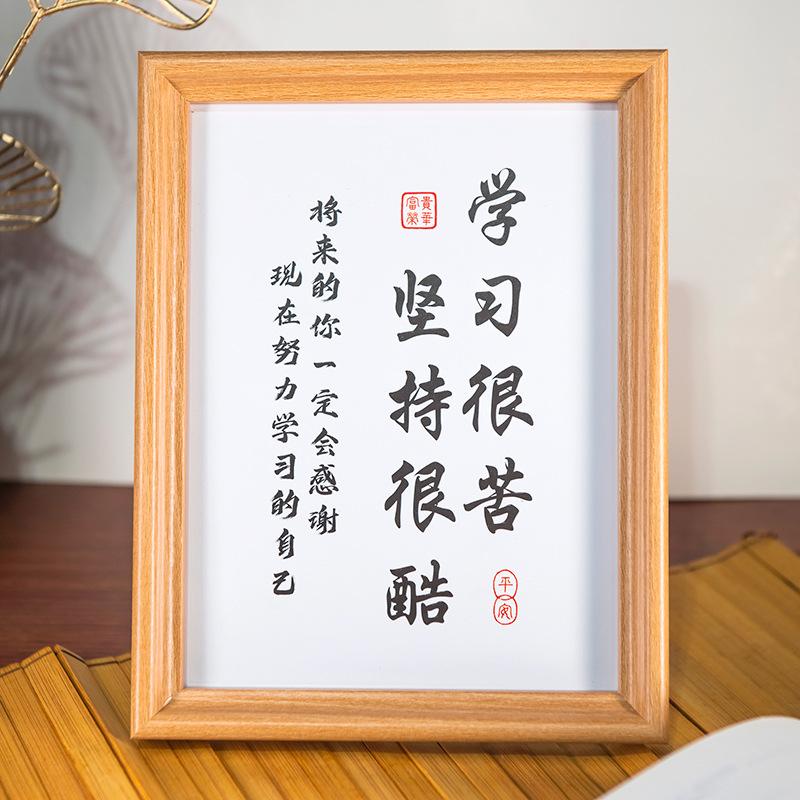 学习很苦
坚持很酷
将来的你一定会感谢
现在努力学习的自己
富貴
榮華
平安